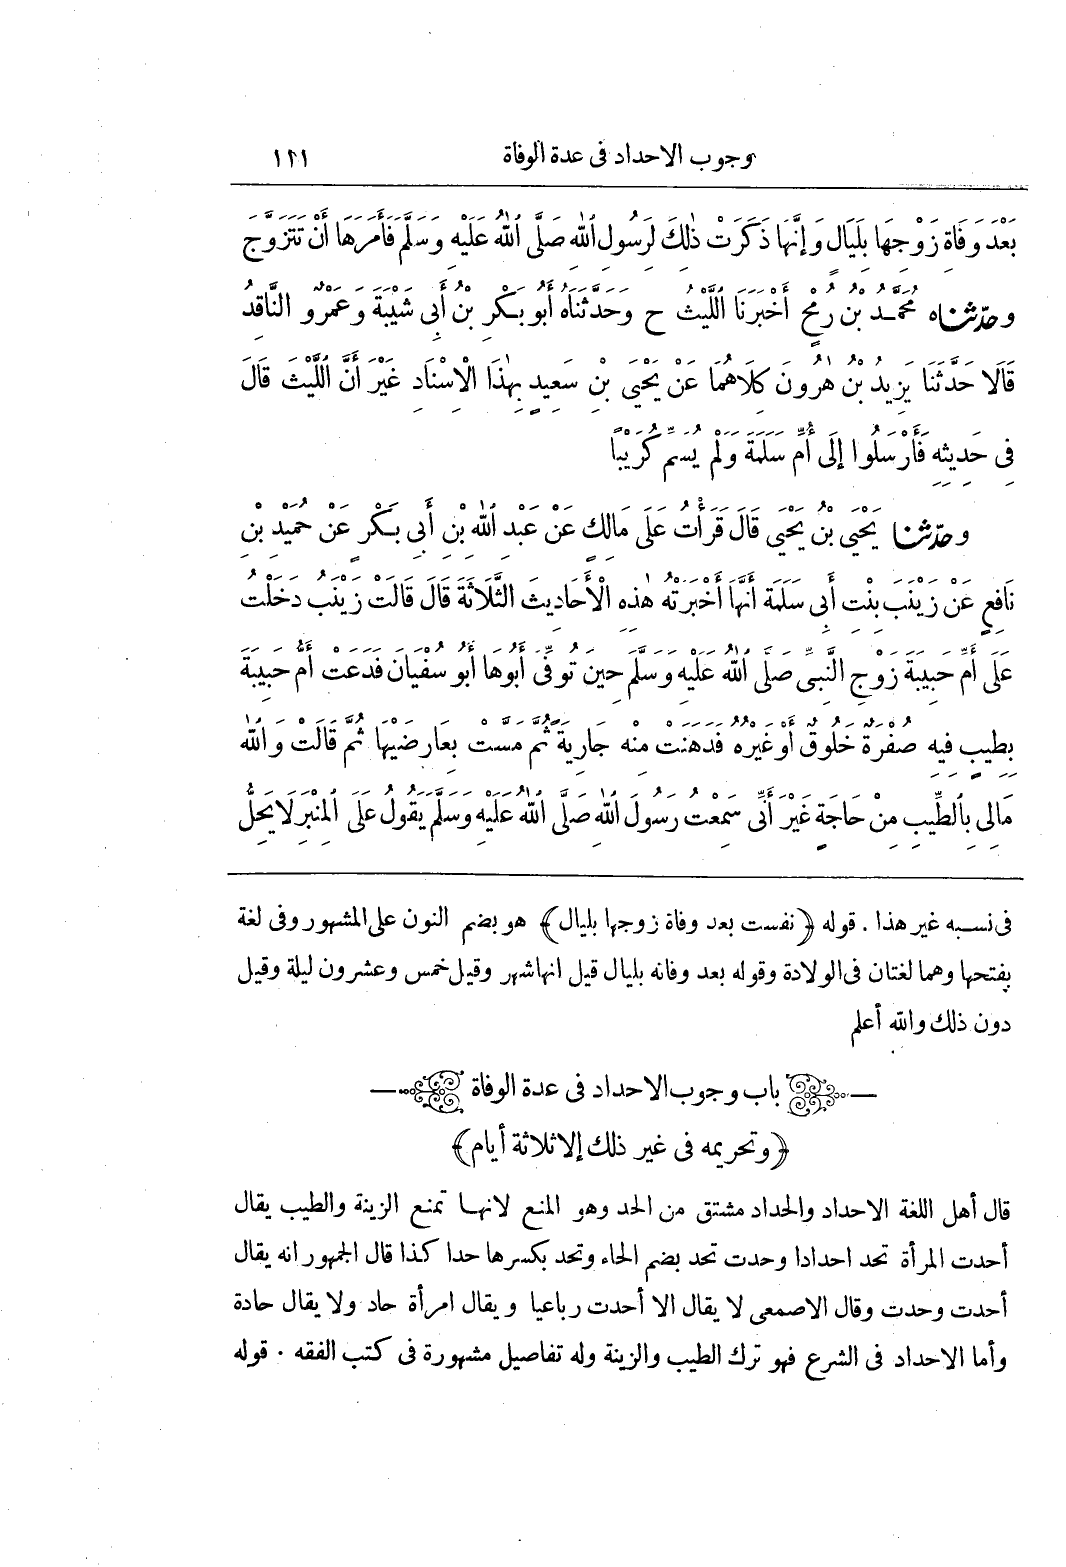 وجوب الاحداد فى عدة الوفاة ١٢١
بَعْدَ وَفَاةِ زَوْجِهَا بِلَيَالٍ وَإِنَّهَا ذَكَرَتْ ذٰلِكَ لِرَسُولِ اللهِ صَلَّى اللهُ عَلَيْهِ وَسَلَّمَ فَأَمَرَهَا أَنْ تَتَزَوَّجَ
وحدثناه مُحَمَّدُ بْنُ رُمْحٍ أَخْبَرَنَا اللَّيْثُ ح وَحَدَّثَنَاهُ أَبُو بَكْرِ بْنُ أَبِى شَيْبَةَ وَعَمْرٌو النَّاقِدُ
قَالَا حَدَّثَنَا يَزِيدُ بْنُ هٰرُونَ كِلَاهُمَا عَنْ يَحْيَى بْنِ سَعِيدٍ بِهٰذَا الْاِسْنَادِ غَيْرَ أَنَّ اللَّيْثَ قَالَ
فِى حَدِيثِهِ فَأَرْسَلُوا إِلَى أُمِّ سَلَمَةَ وَلَمْ يُسَمِّ كُرَيْبًا
وحدثنا يَحْيَى بْنُ يَحْيَى قَالَ قَرَأْتُ عَلَى مَالِكٍ عَنْ عَبْدِ اللهِ بْنِ أَبِى بَكْرٍ عَنْ حُمَيْدِ بْنِ
نَافِعٍ عَنْ زَيْنَبَ بِنْتِ أَبِى سَلَمَةَ أَنَّهَا أَخْبَرَتْهُ هٰذِهِ الْأَحَادِيثَ الثَّلَاثَةَ قَالَ قَالَتْ زَيْنَبُ دَخَلْتُ
عَلَى أُمِّ حَبِيبَةَ زَوْجِ النَّبِىِّ صَلَّى اللهُ عَلَيْهِ وَسَلَّمَ حِينَ تُوُفِّىَ أَبُوهَا أَبُو سُفْيَانَ فَدَعَتْ أُمُّ حَبِيبَةَ
بِطِيبٍ فِيهِ صُفْرَةٌ خَلُوقٌ أَوْ غَيْرُهُ فَدَهَنَتْ مِنْهُ جَارِيَةً ثُمَّ مَسَّتْ بِعَارِضَيْهَا ثُمَّ قَالَتْ وَاللهِ
مَالِى بِالطِّيبِ مِنْ حَاجَةٍ غَيْرَ أَنِّى سَمِعْتُ رَسُولَ اللهِ صَلَّى اللهُ عَلَيْهِ وَسَلَّمَ يَقُولُ عَلَى الْمِنْبَرِ لَا يَحِلُّ
فى نسبه غير هذا . قوله ﴿نفست بعد وفاة زوجها بليال﴾ هو بضم النون على المشهور وفى لغة
بفتحها وهما لغتان فى الولادة وقوله بعد وفاته بليال قيل انها شهر وقيل خمس وعشرون ليلة وقيل
دون ذلك والله أعلم
باب وجوب الاحداد فى عدة الوفاة
﴿وتحريمه فى غير ذلك إلا ثلاثة أيام﴾
قال أهل اللغة الاحداد والحداد مشتق من الحد وهو المنع لانها تمنع الزينة والطيب يقال
أحدت المرأة تحد احدادا وحدت تحد بضم الحاء وتحد بكسرها حدا كذا قال الجمهور انه يقال
أحدت وحدت وقال الاصمعى لا يقال الا أحدت رباعيا ويقال امرأة حاد ولا يقال حادة
وأما الاحداد فى الشرع فهو ترك الطيب والزينة وله تفاصيل مشهورة فى كتب الفقه . قوله